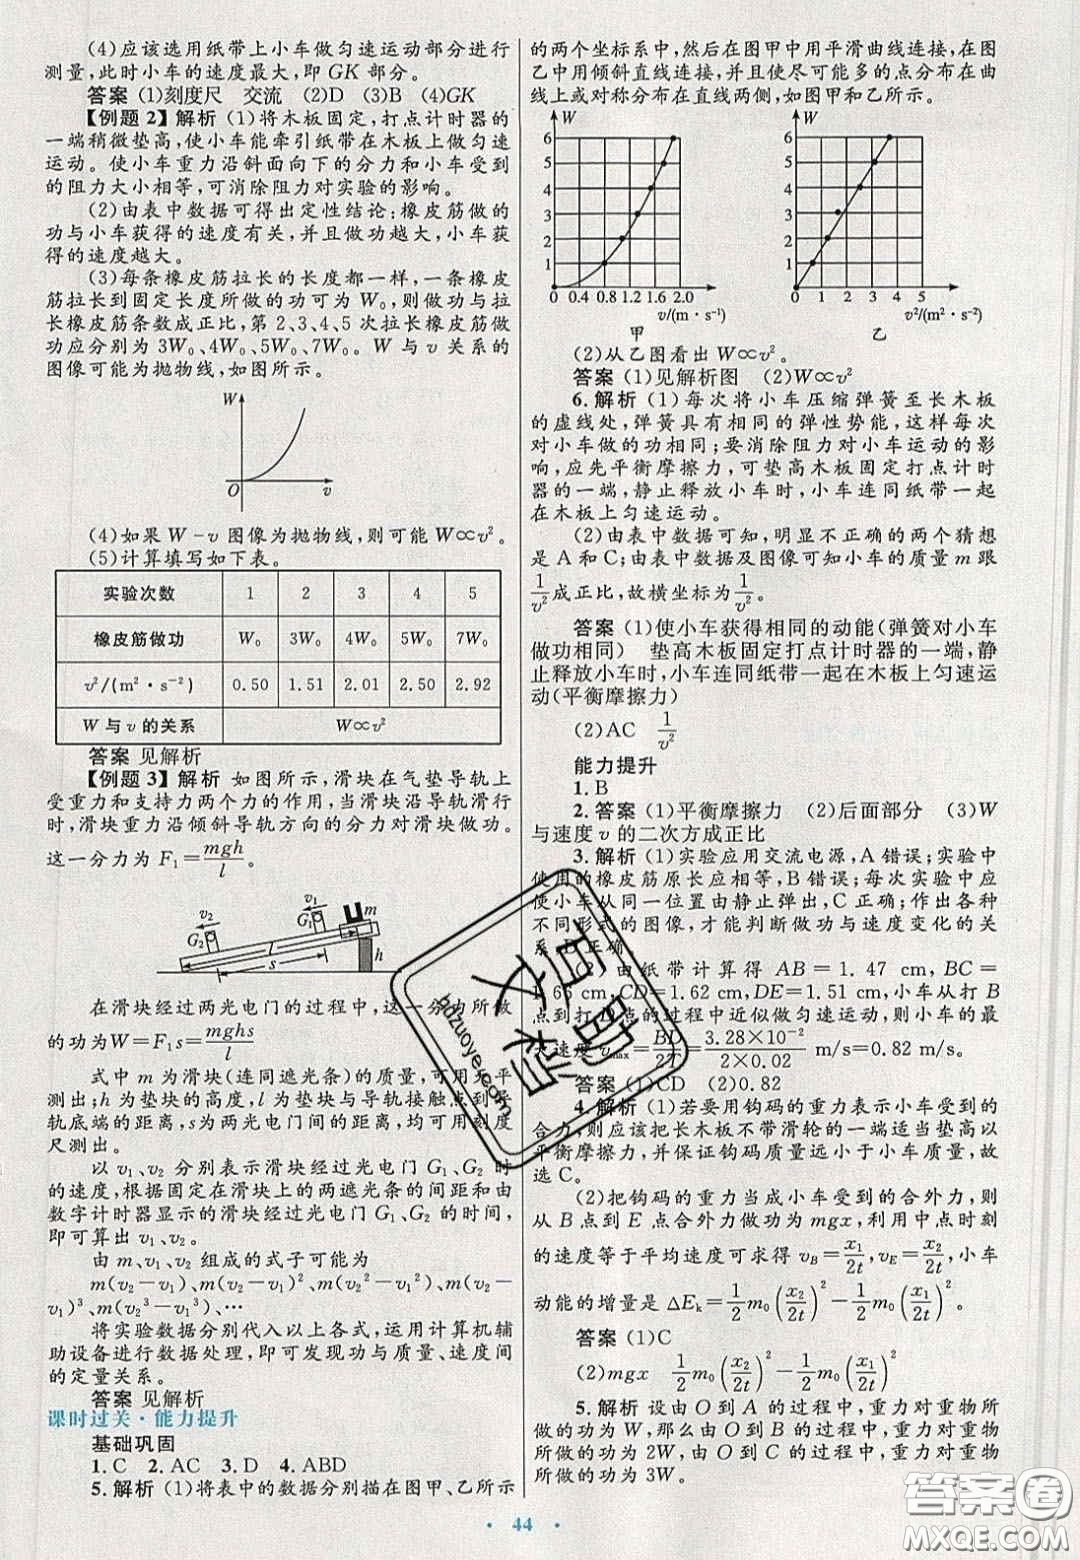 (4)应该选用纸带上小车做匀速运动部分进行
测量,此时小车的速度最大,即 GK 部分。
答案 (1)刻度尺 交流 (2)D (3)B (4)GK
【例题 2】解析 (1)将木板固定,打点计时器的
一端稍微垫高,使小车能牵引纸带在木板上做匀速
运动。使小车重力沿斜面向下的分力和小车受到
的阻力大小相等,可消除阻力对实验的影响。
(2)由表中数据可得出定性结论:橡皮筋做的
功与小车获得的速度有关,并且做功越大,小车获
得的速度越大。
(3)每条橡皮筋拉长的长度都一样,一条橡皮
筋拉长到固定长度所做的功可为 W₀,则做功与拉
长橡皮筋条数成正比,第 2、3、4、5 次拉长橡皮筋做
功应分别为 3W₀、4W₀、5W₀、7W₀。W 与 v 关系的
图像可能为抛物线,如图所示。
W
O
v
(4)如果 W-v 图像为抛物线,则可能 W∝v²。
(5)计算填写如下表。
实验次数 1 2 3 4 5
橡皮筋做功 W₀ 3W₀ 4W₀ 5W₀ 7W₀
v²/(m²·s⁻²) 0.50 1.51 2.01 2.50 2.92
W 与 v 的关系 W∝v²
答案 见解析
【例题 3】解析 如图所示,滑块在气垫导轨上
受重力和支持力两个力的作用,当滑块沿导轨滑行
时,滑块重力沿倾斜导轨方向的分力对滑块做功。
这一分力为 F₁=mgh/l。
v₂ G₂ v₁ G₁ m l s h
在滑块经过两光电门的过程中,这一分力所做
的功为W=F₁s=mghs/l
式中 m 为滑块(连同遮光条)的质量,可用天平
测出;h 为垫块的高度,l 为垫块与导轨接触点到导
轨底端的距离,s为两光电门间的距离,均可用刻度
尺测出。
以 v₁、v₂ 分别表示滑块经过光电门 G₁、G₂ 时
的速度,根据固定在滑块上的两遮光条的间距和由
数字计时器显示的滑块经过光电门 G₁、G₂ 的时间,
即可算出 v₁、v₂。
由 m、v₁、v₂ 组成的式子可能为
m(v₂-v₁)、m(v₂-v₁)²、m(v₂²-v₁²)、m(v₂-
v₁)³、m(v₂³-v₁³)、…
将实验数据分别代入以上各式,运用计算机辅
助设备进行数据处理,即可发现功与质量、速度间
的定量关系。
答案 见解析
课时过关·能力提升
基础巩固
1.C 2.AC 3.D 4.ABD
5.解析 (1)将表中的数据分别描在图甲、乙所示
的两个坐标系中,然后在图甲中用平滑曲线连接,在图
乙中用倾斜直线连接,并且使尽可能多的点分布在曲
线上或对称分布在直线两侧,如图甲和乙所示。
W
6
5
4
3
2
1
0 0.4 0.8 1.2 1.6 2.0
v/(m·s⁻¹)
甲
W
6
5
4
3
2
1
0 1 2 3 4 5
v²/(m²·s⁻²)
乙
(2)从乙图看出 W∝v²。
答案 (1)见解析图 (2)W∝v²
6.解析 (1)每次将小车压缩弹簧至长木板
的虚线处,弹簧具有相同的弹性势能,这样每次
对小车做的功相同;要消除阻力对小车运动的影
响,应先平衡摩擦力,可垫高木板固定打点计时
器的一端,静止释放小车时,小车连同纸带一起
在木板上匀速运动。
(2)由表中数据可知,明显不正确的两个猜想
是 A 和 C;由表中数据及图像可知小车的质量 m 跟
1/v²成正比,故横坐标为1/v²。
答案 (1)使小车获得相同的动能(弹簧对小车
做功相同) 垫高木板固定打点计时器的一端,静
止释放小车时,小车连同纸带一起在木板上匀速运
动(平衡摩擦力)
(2)AC 1/v²
能力提升
1.B
2.答案 (1)平衡摩擦力 (2)后面部分 (3)W
与速度 v 的二次方成正比
3.解析 (1)实验应用交流电源,A 错误;实验中
使用的橡皮筋原长应相等,B 错误;每次实验中应
使小车从同一位置由静止弹出,C 正确;作出各种
不同形式的图像,才能判断做功与速度变化的关
系,D 正确。
(2)由纸带计算得 AB=1.47 cm,BC=
1.66 cm,CD=1.62 cm,DE=1.51 cm,小车从打 B
点到打 D 点的过程中近似做匀速运动,则小车的最
大速度 vmax=BD/2T=3.28×10⁻²/2×0.02 m/s=0.82 m/s。
答案 (1)CD (2)0.82
4.解析 (1)若要用钩码的重力表示小车受到的
合力,则应该把长木板不带滑轮的一端适当垫高以
平衡摩擦力,并保证钩码质量远小于小车质量,故
选 C。
(2)把钩码的重力当成小车受到的合外力,则
从 B 点到 E 点合外力做功为 mgx,利用中点时刻
的速度等于平均速度可求得 vB=x₁/2t,vE=x₂/2t,小车
动能的增量是 ΔEk=1/2 m₀(x₂/2t)²-1/2 m₀(x₁/2t)²。
答案 (1)C
(2)mgx 1/2 m₀(x₂/2t)²-1/2 m₀(x₁/2t)²
5.解析 设由 O 到 A 的过程中,重力对重物所
做的功为 W,那么由 O 到 B 的过程中,重力对重物
所做的功为 2W,由 O 到 C 的过程中,重力对重物
所做的功为 3W。
· 44 ·
百文助档
bdzuoye.com
答案圈
MXQE.COM